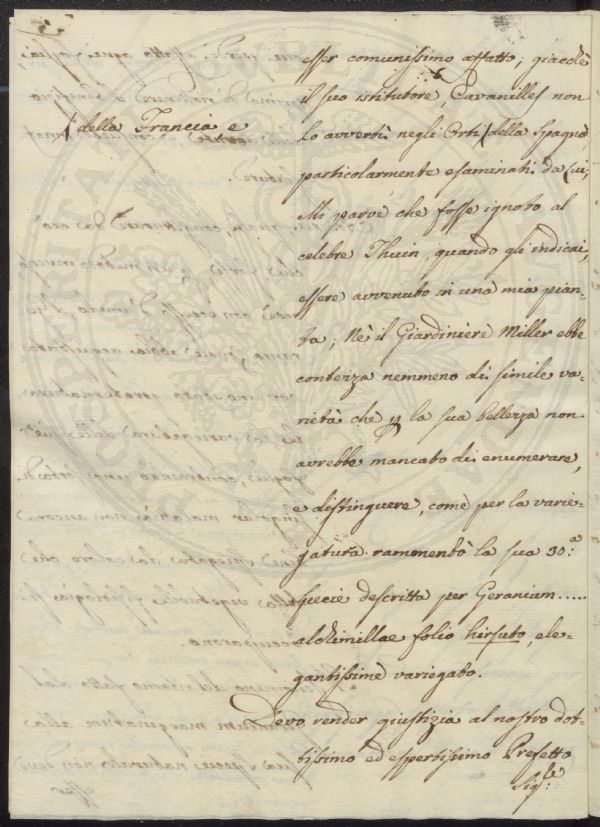 esser comunissimo affatto; giacchè
il suo istitutore, Cavanilles non
lo avvertì negli Orti /della Spagna,
/ della Francia e
particolarmente esaminati da lui;
Mi parve che fosse ignoto al
celebre Thuin, quando gli indicai,
essere avvenuto in una mia pian-
ta; Nè il Giardiniere Miller ebbe
contezza nemmeno di simile va-
rietà che p la sua bellezza non
avrebbe mancato di enumerare,
e distinguere, come per la varie-
gatura rammentò la sua 30.a
specie descritta per Geranium.....
alchimillae folio hirsuto, ele-
gantissime variegato.
Devo render giustizia al nostro dot-
tissimo ed espertissimo Prefetto
Sigre: